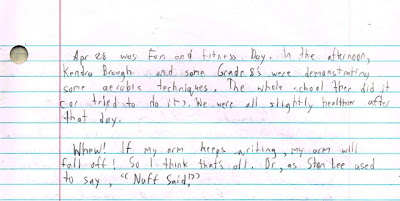 Apr 28 was Fun and fitness Day. In the afternoon,
Kendra Brough and some Grade 8's were demonstrating
some aerobic techniques. The whole school then did it
(or tried to do it). We were all slightly healthier after
that day.
Whew! If my arm keeps writing, my arm will
fall off! So I think that's all. Or, as Stan Lee used
to say, "Nuff Said!"